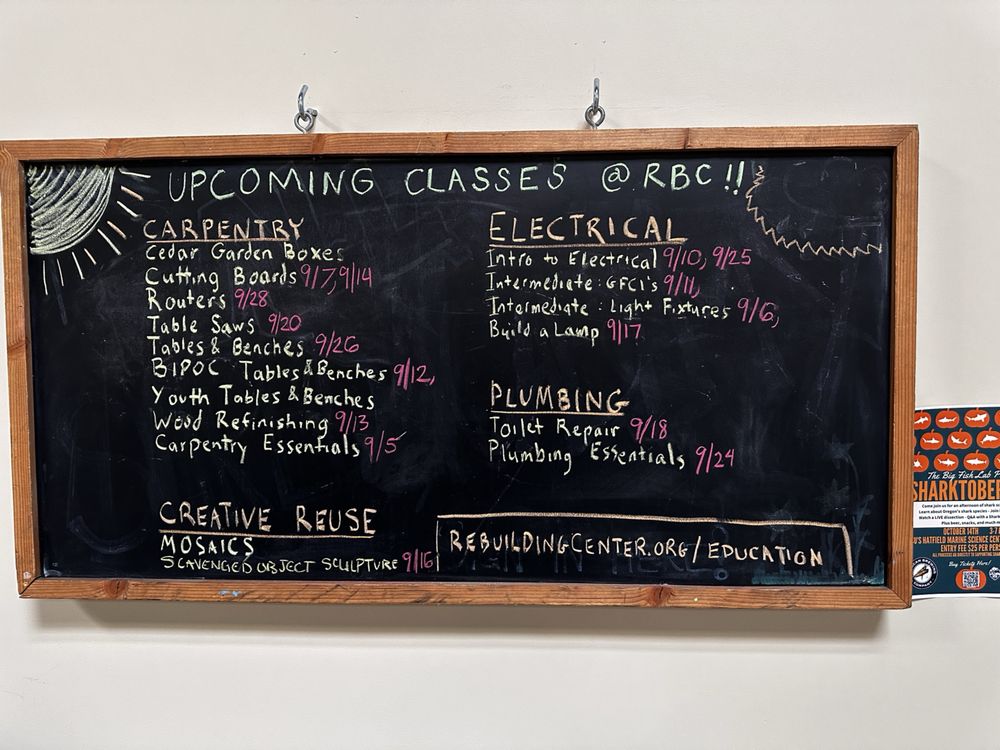 UPCOMING CLASSES @ RBC !!
CARPENTRY
Cedar Garden Boxes
Cutting Boards 9/7, 9/14
Routers 9/28
Table Saws 9/20
Tables & Benches 9/26
BIPOC Tables & Benches 9/12,
Youth Tables & Benches
Wood Refinishing 9/13
Carpentry Essentials 9/5
CREATIVE REUSE
MOSAICS
SCAVENGED OBJECT SCULPTURE 9/16
ELECTRICAL
Intro to Electrical 9/10, 9/25
Intermediate: GFCI's 9/11,
Intormediate: Light Fixtures 9/6,
Build a Lamp 9/17
PLUMBING
Toilet Repair 9/18
Plumbing Essentials 9/24
REBUILDINGCENTER.ORG/EDUCATION
The Big Fish Lab
SHARKTOBE
Come join us for an afternoon of shark
Learn about Oregon's shark species - Join
Watch a LIVE dissection - Q&A with a Shark
Plus beer, snacks, and much
OCTOBER 14TH 3-7
HATFIELD MARINE SCIENCE CEN
ENTRY FEE $25 PER PERS
ALL PROCEEDS GO DIRECTLY TO SUPPORTING
Buy Tickets Here!